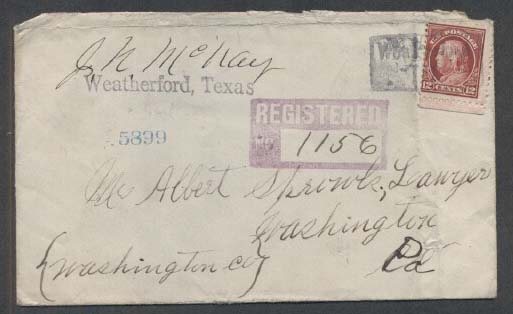 J. N. McKay
Weatherford, Texas
U.S. POSTAGE
12 CENTS 12
5899
REGISTERED
No. 1156
Mr Albert Sprowls, Lawyer
Washington
(Washington co) Pa